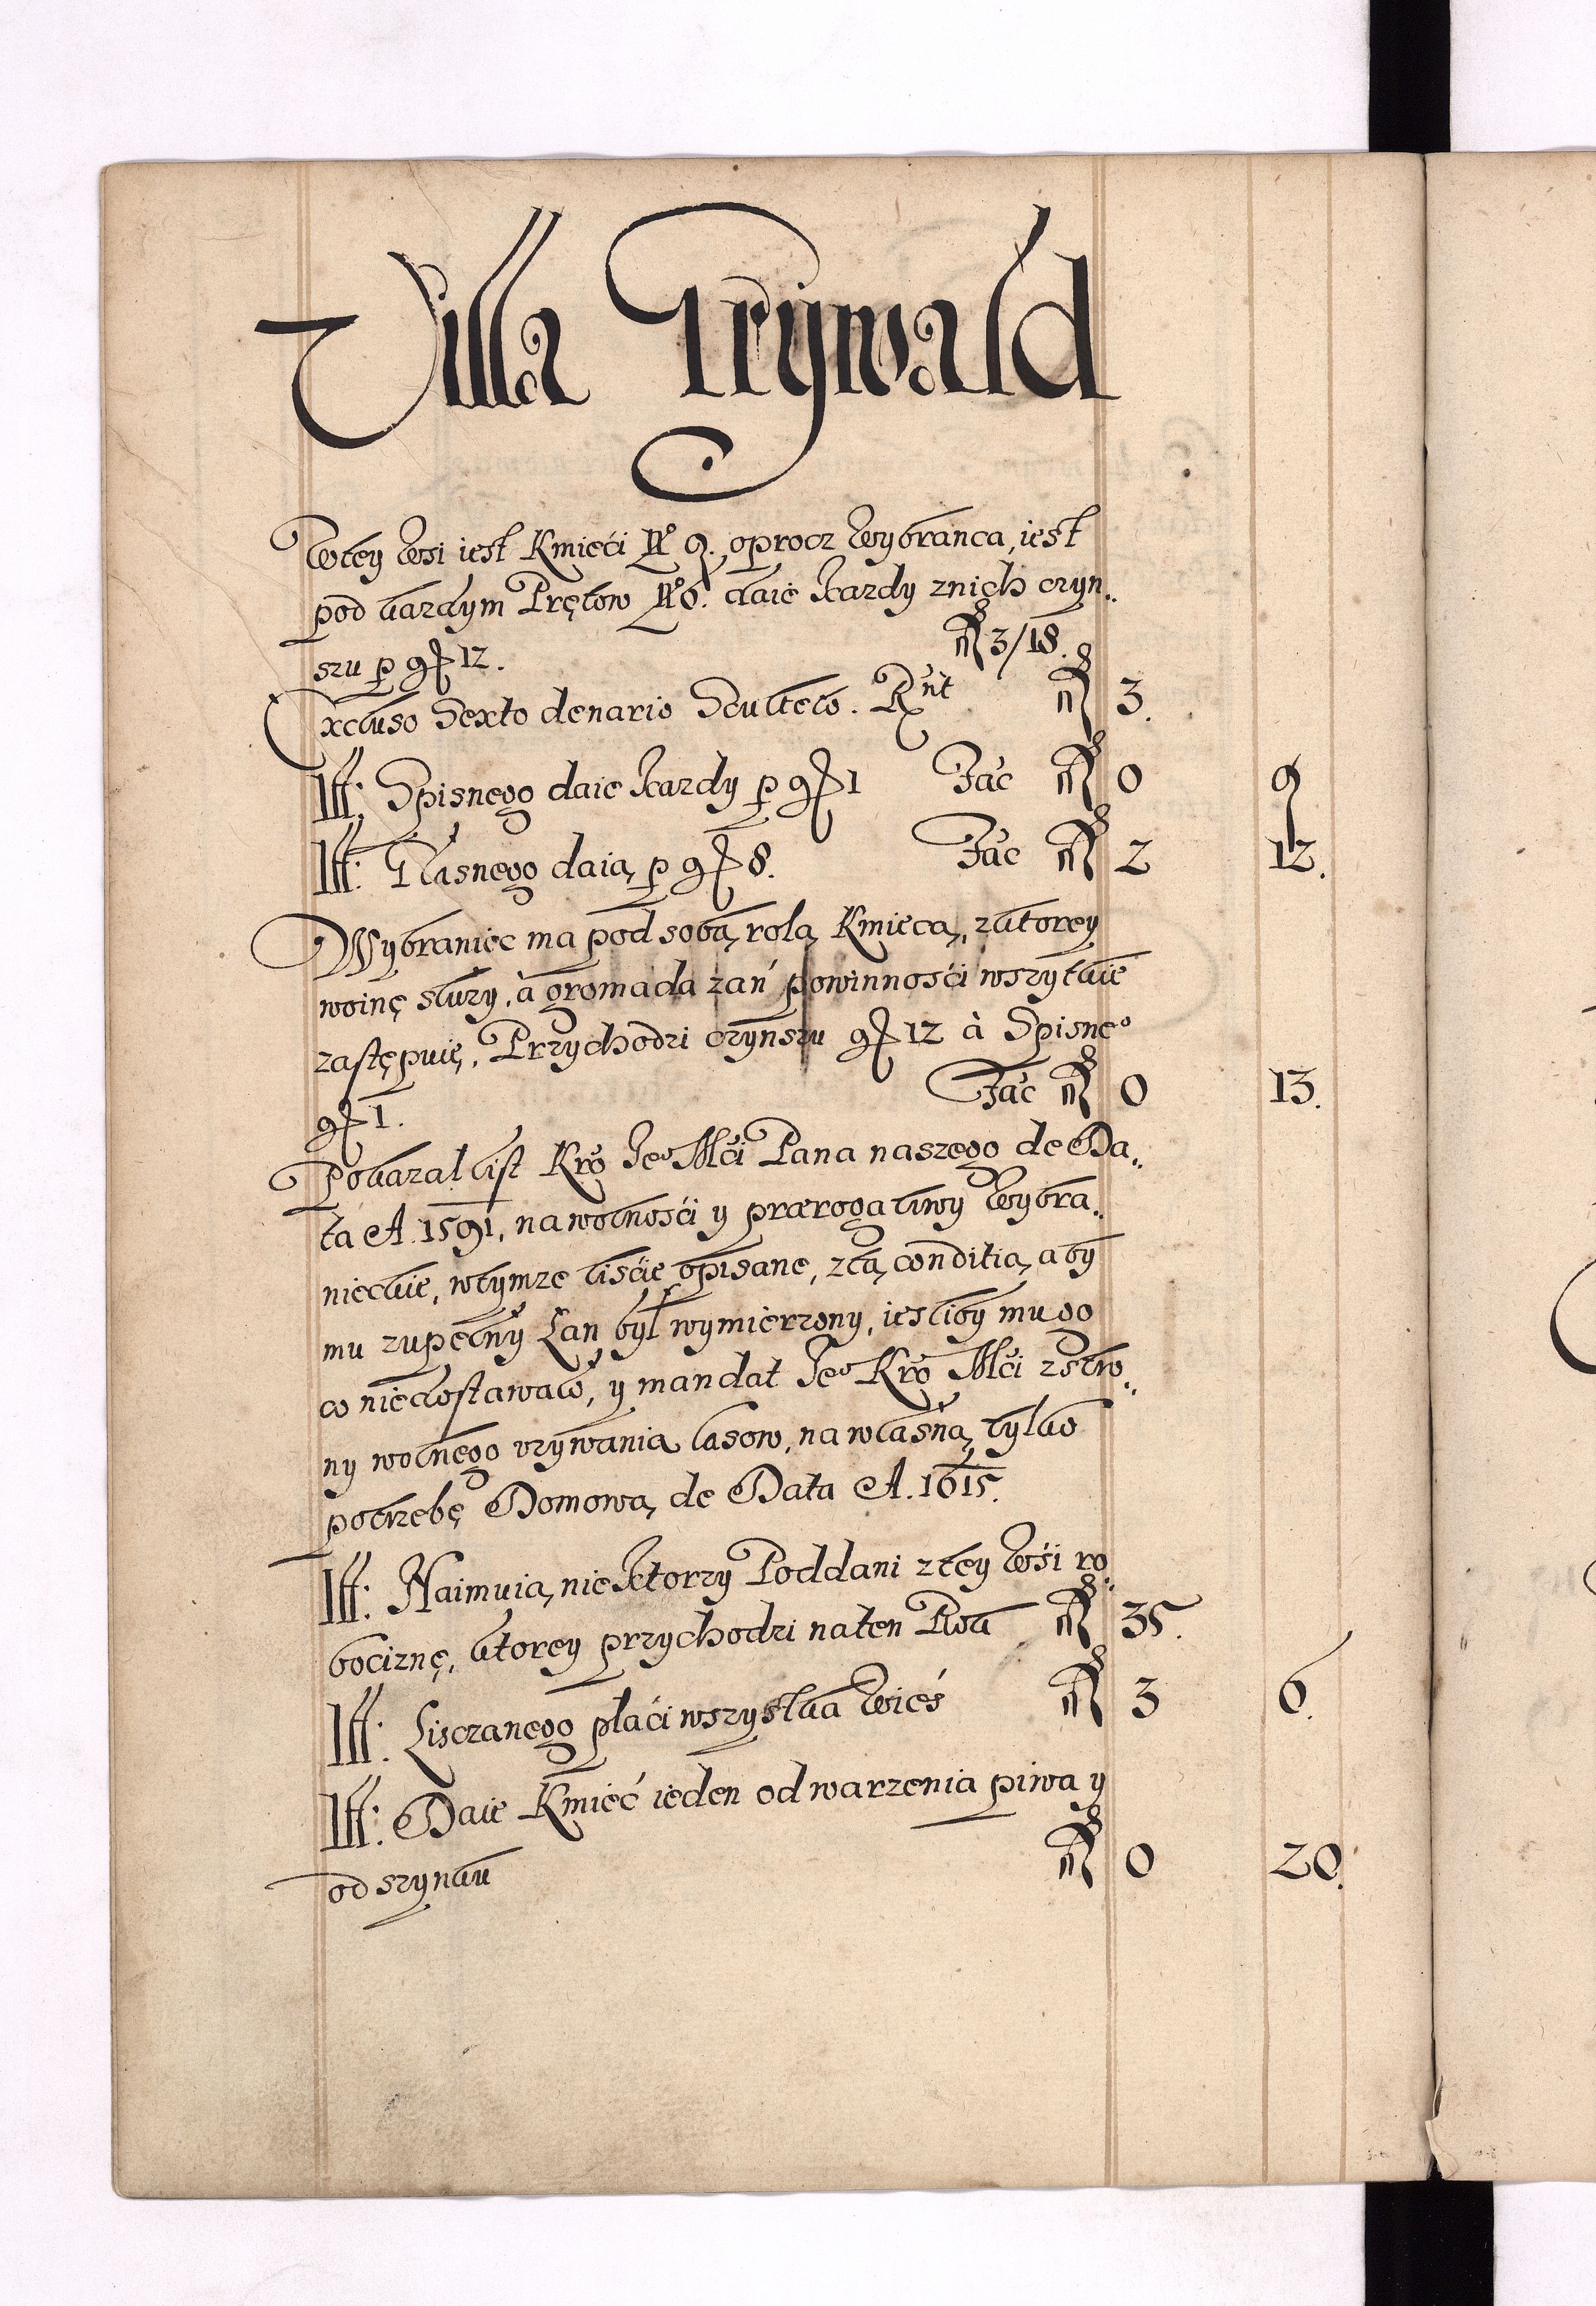 Villa Grywald
Wtey Wsi iest Kmieći No 9. oprocz Wybranca, iest
pod każdym Prętow No 6. daie każdy znich czyn..
szu p gr 12. fl 3/18.
Excluso Sexto denario Scultето. Rnt fl 3.
Itē: Spisnego daie każdy p gr 1 Fac fl 0 9
Itē: Nasnego daią p gr 8. Fac fl 2 12.
Wybraniec ma pod sobą rolą Kmiecą, zktorey
woinę służy, à gromada zań powinnośći wszytkie
zastępuię. Przychodzi czynszu gr 12 à Spisneo
gr 1. Fac fl 0 13.
Pokazal list Kro Jeo Mći Pana naszego de Da..
ta A. 1591. na wolnośći y prærogatiwy Wybra..
nieckie, wtymże liśćie opisane, ztą conditią, aby
mu zupełny Łan był wymierzony, iesliby mu go
co niedostawało, y mandat Jeo Kro Mći zstro..
ny wolnego używania lasow, na własną tylko
potrzebę Domową de Data A. 1615.
Itē: Naimuią niektorzy Poddani ztey Wśi ro..
bociznę, ktorey przychodzi na ten Rok fl 35.
Itē: Lisczanego płaći wszystka Wieś fl 3 6.
Itē: Daie Kmieć ieden od warzenia piwa y
od szynku fl 0 20.